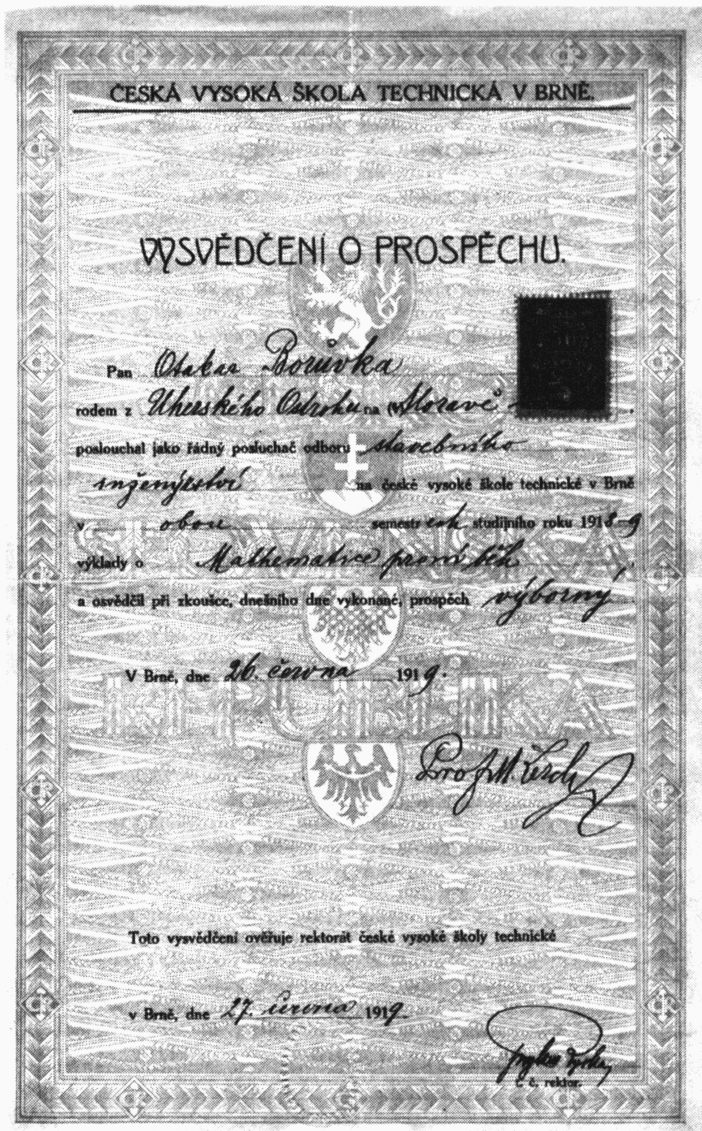 ČESKÁ VYSOKÁ ŠKOLA TECHNICKÁ V BRNĚ.
VYSVĚDČENÍ O PROSPĚCHU.
Pan Otakar Borůvka
rodem z Uherského Ostrohu na Moravě
poslouchal jako řádný posluchač odboru stavebního
inženýrství na české vysoké škole technické v Brně
v obou semestrech studijního roku 1918-9
výklady o Mathematice první běh
a osvědčil při zkoušce, dnešního dne vykonané, prospěch výborný
V Brně, dne 26. června 1919.
Prof. M. Lerch
Toto vysvědčení ověřuje rektorát české vysoké školy technické
v Brně, dne 27. června 1919
t. č. rektor.